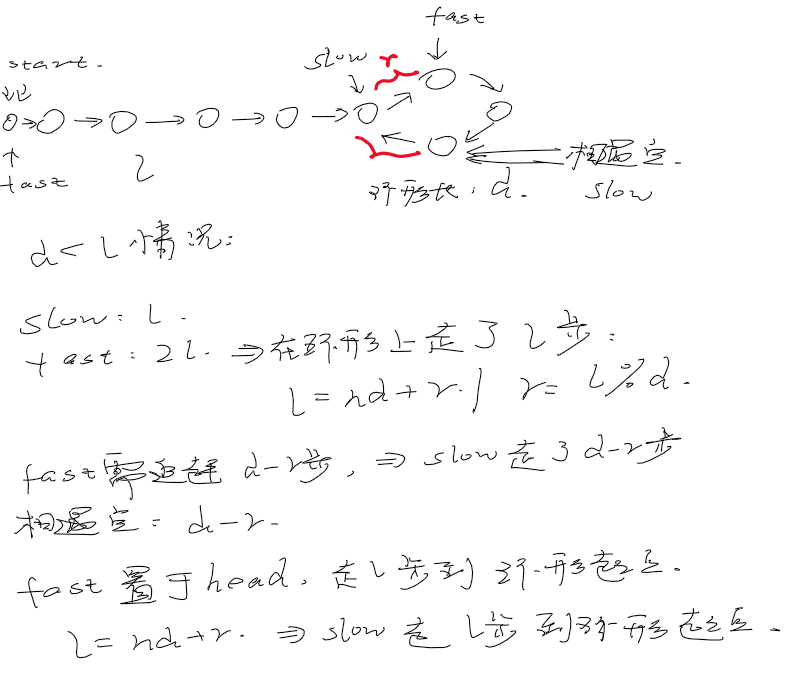 fast
start.
slow r
fast
l
相遇点.
环形长: d.
slow
d < l 情况:
slow: l.
fast: 2l. ⇒ 在环形上走了 l 步:
l = nd + r. | r = l % d.
fast需追赶 d-r步, ⇒ slow走了 d-r步
相遇点: d-r.
fast 置于head, 走 l 步到环形起点.
l = nd + r. ⇒ slow 走 l步 到环形起点.